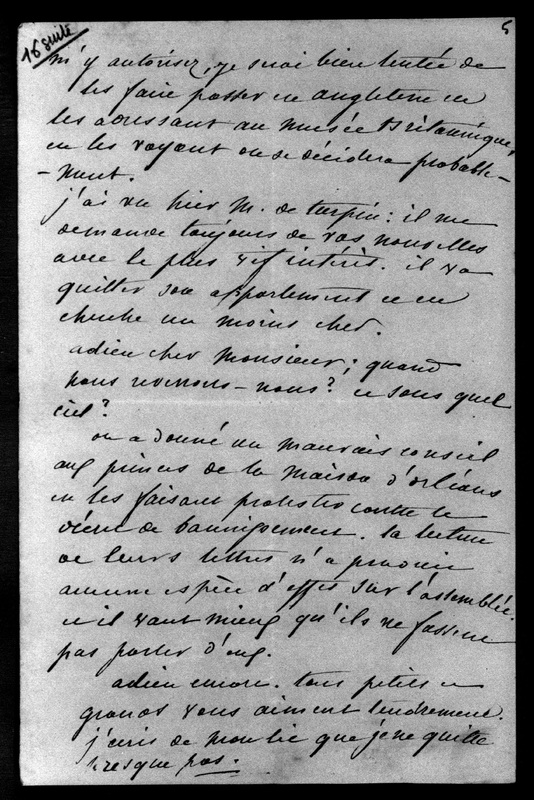 5
16 suite
m'y autorisez, je serai bien tentée de
les faire passer en angleterre en
les adressant au musée Britannique,
en les voyant on se décidera probable-
-ment.
j'ai vu hier M. de turpin : il me
demande toujours de vos nouvelles
avec le plus vif intérêt. il va
quitter son appartement et en
cherche un moins cher.
adieu cher Monsieur ; quand
nous reverrons-nous ? et sous quel
ciel ?
on a donné un mauvais conseil
aux princes de la Maison d'orléans
en les faisant protester contre le
décret de bannissement. la lecture
de leurs lettres n'a produit
aucune espèce d'effet sur l'assemblée.
et il vaut mieux qu'ils ne fassent
pas parler d'eux.
adieu encore. tous petits et
grands vous aiment tendrement.
j'écris de mon lit que je ne quitte
presque pas.